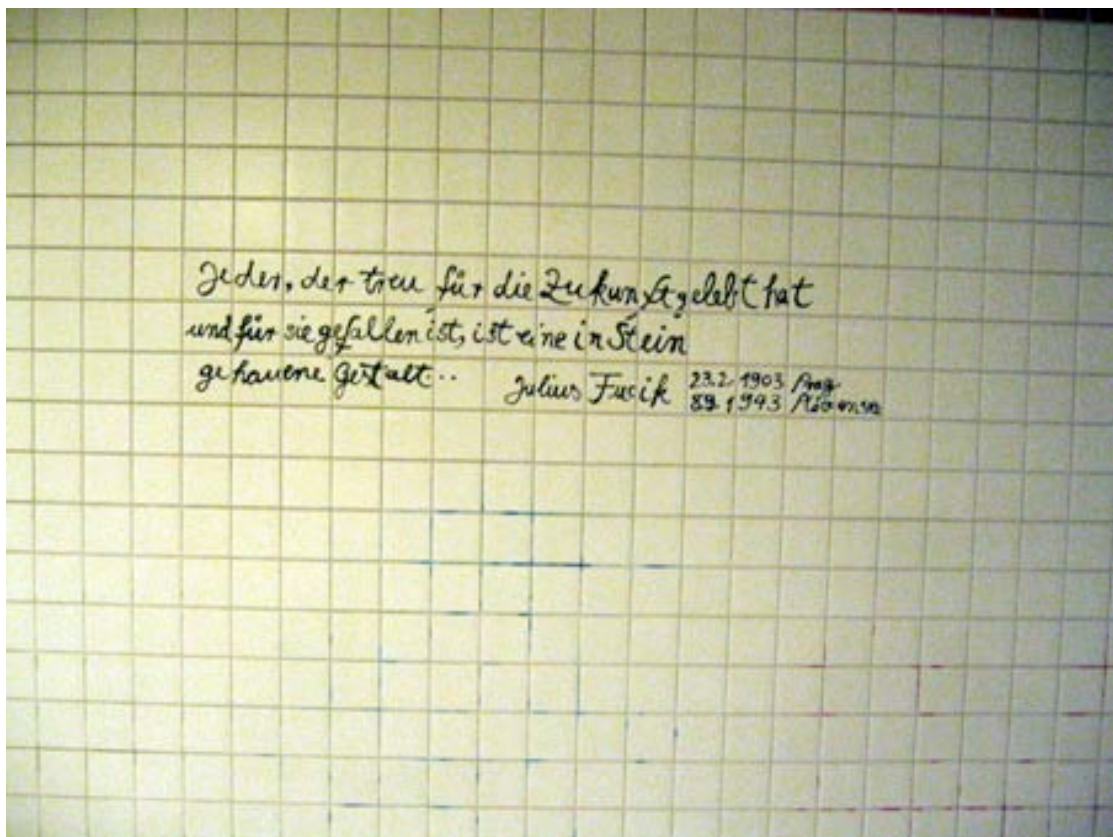 Jeder, der treu für die Zukunft gelebt hat
und für sie gefallen ist, ist eine in Stein
gehauene Gestalt..
Julius Fucik
23.2.1903 Prag
8.9.1943